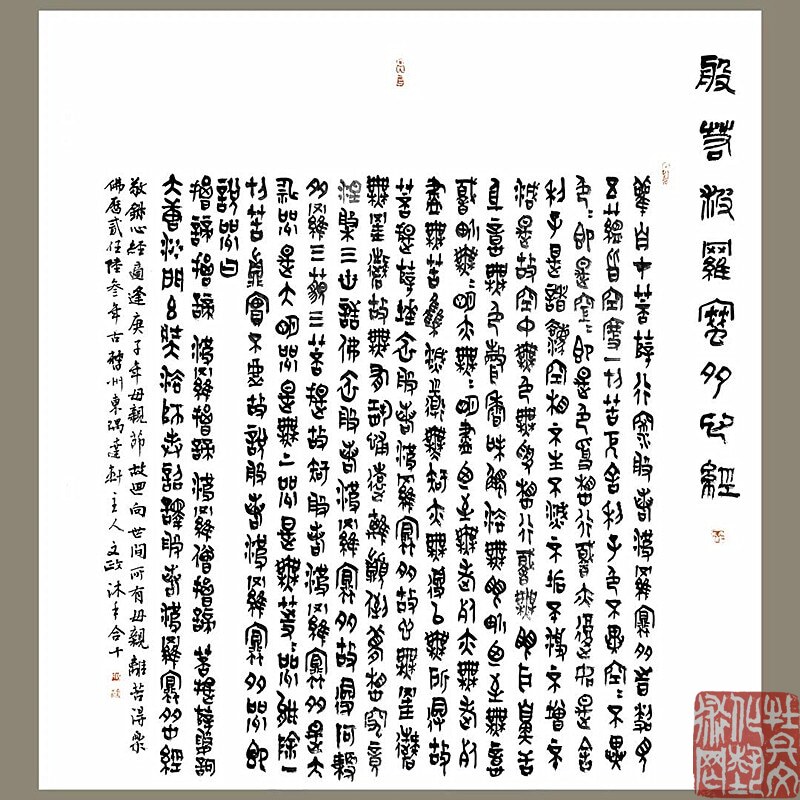 般若波羅蜜多心經
觀自在菩薩行深般若波羅蜜多時照見
五蘊皆空度一切苦厄舍利子色不異空〻不異
色〻即是空〻即是色受想行識亦復如是舍
利子是諸法空相不生不滅不垢不淨不增不
減是故空中無色無受想行識無眼耳鼻舌
身意無色聲香味觸法無眼界乃至無意
識界無〻明亦無〻明盡乃至無老死亦無老死
盡無苦集滅道無智亦無得以無所得故
菩提薩埵依般若波羅蜜多故心無罣礙
無罣礙故無有恐怖遠離顛倒夢想究竟
涅槃三世諸佛依般若波羅蜜多故得阿耨
多羅三藐三菩提故知般若波羅蜜多是大
神咒是大明咒是無上咒是無等〻咒能除一
切苦真實不虛故說般若波羅蜜多咒即
說咒曰
揭諦揭諦 波羅揭諦 波羅僧揭諦 菩提薩婆訶
大唐沙門玄奘法師奉詔譯般若波羅蜜多心經
敬錄心經適逢庚子年母親節故迴向世間所有母親離苦得樂
佛歷貳仟陸叁年古暨州東隅達軒主人文政沐手合十